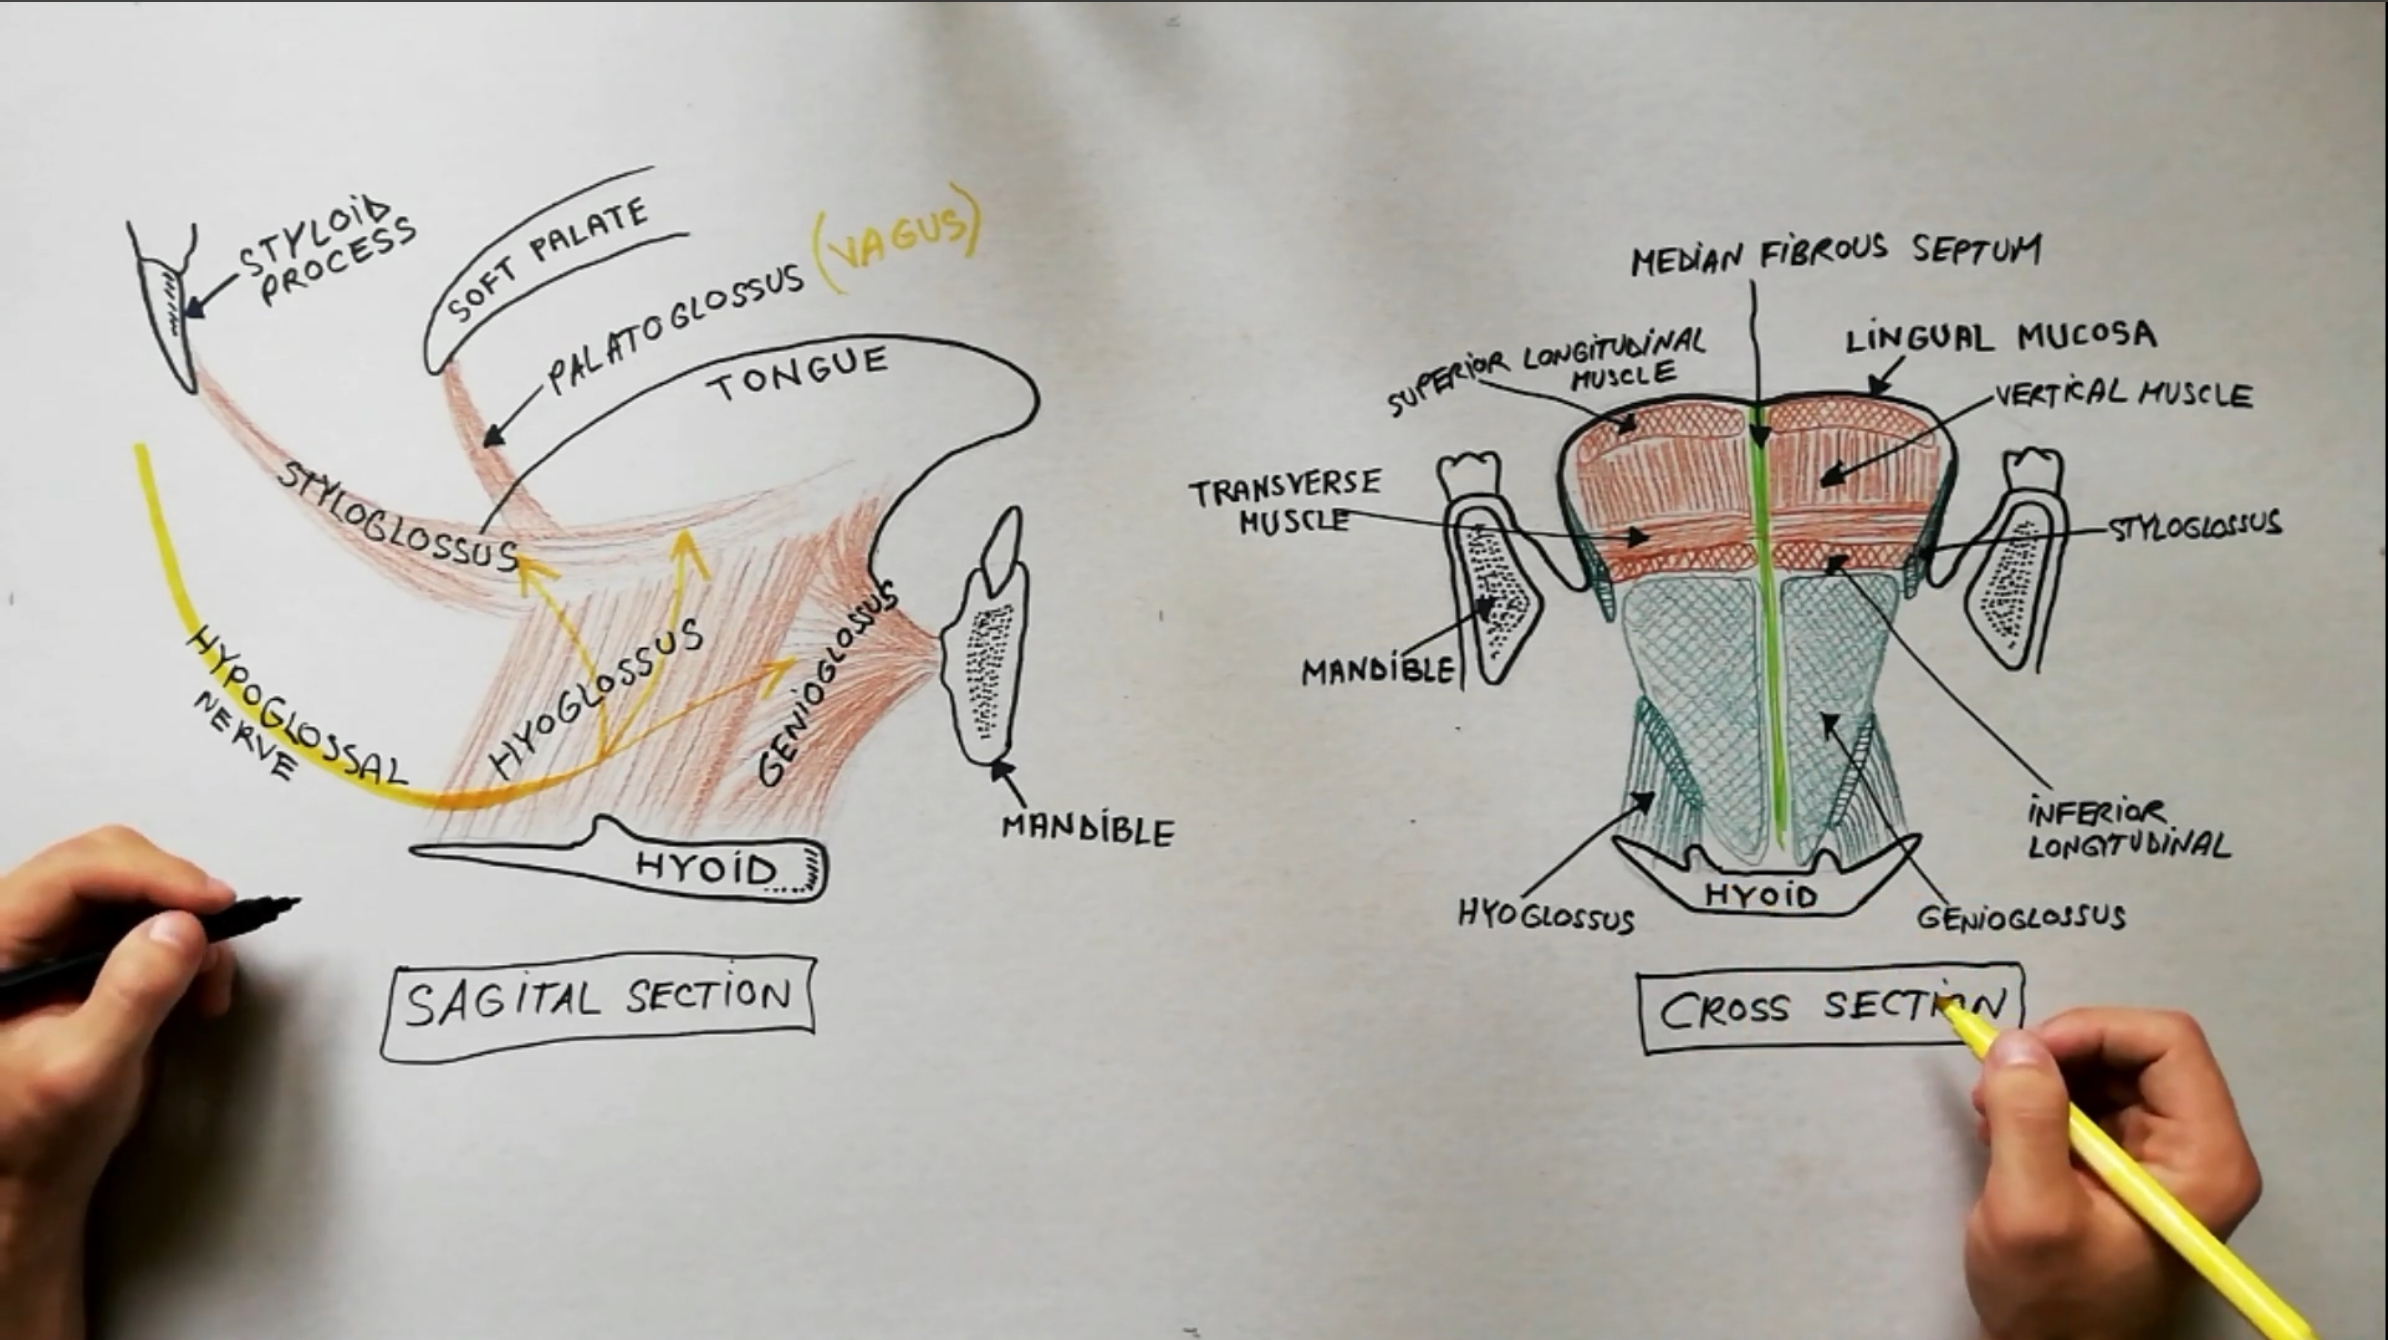 STYLOID
PROCESS
SOFT PALATE
PALATOGLOSSUS (VAGUS)
TONGUE
STYLOGLOSSUS
HYPOGLOSSAL
NERVE
HYOGLOSSUS
GENIOGLOSSUS
MANDIBLE
HYOID
SAGITAL SECTION
MEDIAN FIBROUS SEPTUM
SUPERIOR LONGITUDINAL
MUSCLE
LINGUAL MUCOSA
VERTICAL MUSCLE
TRANSVERSE
MUSCLE
STYLOGLOSSUS
MANDIBLE
INFERIOR
LONGITUDINAL
HYOGLOSSUS
HYOID
GENIOGLOSSUS
CROSS SECTION